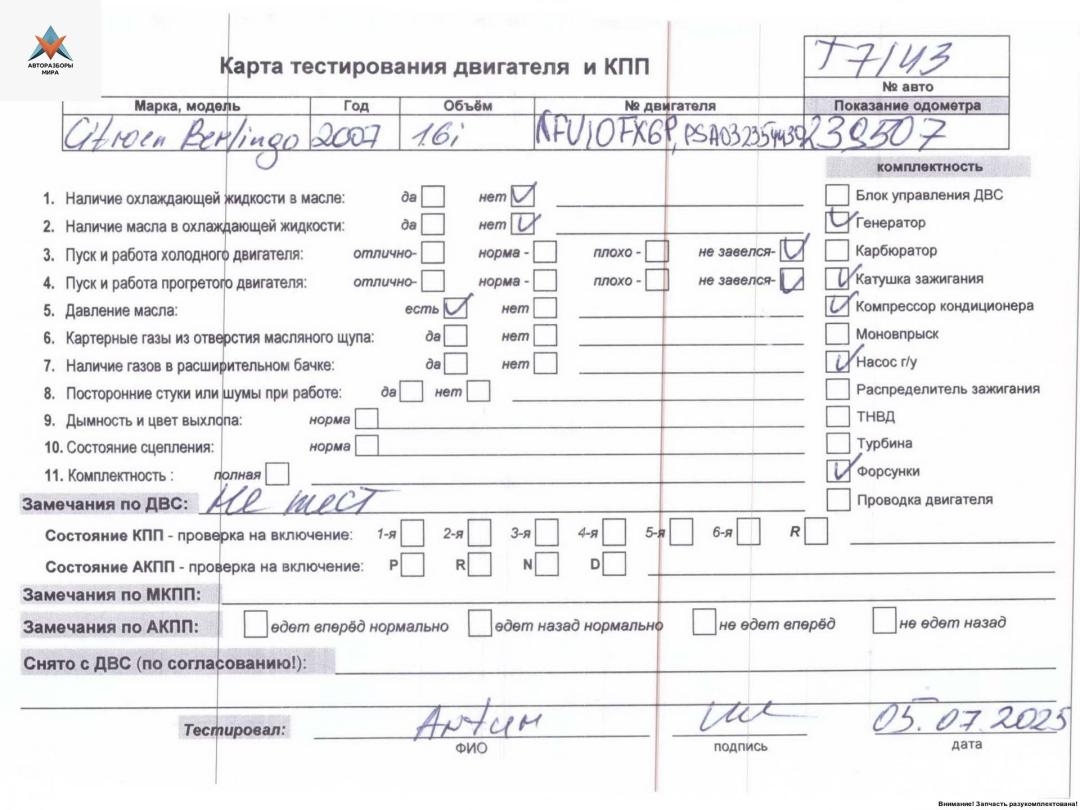 АВТОРАЗБОРЫ
МИРА
Карта тестирования двигателя и КПП
T7/143
№ авто
Марка, модель Год Объём № двигателя Показание одометра
Citroen Berlingo 2007 1.6i NFU10FX6P, PSA032354430 239507
комплектность
1. Наличие охлаждающей жидкости в масле: да нет
Блок управления ДВС
2. Наличие масла в охлаждающей жидкости: да нет
Генератор
3. Пуск и работа холодного двигателя: отлично- норма - плохо - не завелся-
Карбюратор
4. Пуск и работа прогретого двигателя: отлично- норма - плохо - не завелся-
Катушка зажигания
5. Давление масла: есть нет
Компрессор кондиционера
6. Картерные газы из отверстия масляного щупа: да нет
Моновпрыск
7. Наличие газов в расширительном бачке: да нет
Насос г/у
8. Посторонние стуки или шумы при работе: да нет
Распределитель зажигания
9. Дымность и цвет выхлопа: норма
ТНВД
10. Состояние сцепления: норма
Турбина
11. Комплектность : полная
Форсунки
Замечания по ДВС: Не тест
Проводка двигателя
Состояние КПП - проверка на включение: 1-я 2-я 3-я 4-я 5-я 6-я R
Состояние АКПП - проверка на включение: P R N D
Замечания по МКПП:
Замечания по АКПП: едет вперёд нормально едет назад нормально не едет вперёд не едет назад
Снято с ДВС (по согласованию!):
Тестировал: Антип 05.07.2025
ФИО подпись дата
Внимание! Запчасть разукомплектована!